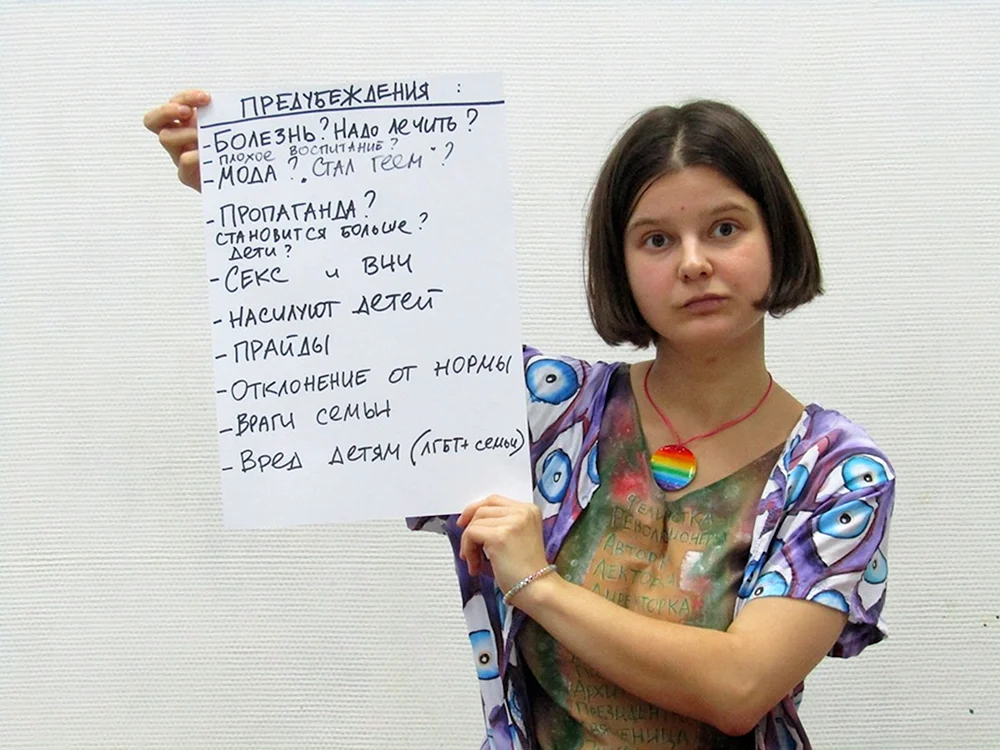 ПРЕДУБЕЖДЕНИЯ :
- БОЛЕЗНЬ? НАДО ЛЕЧИТЬ?
- ПЛОХОЕ ВОСПИТАНИЕ?
- МОДА? "СТАЛ ГЕЕМ"?
- ПРОПАГАНДА?
СТАНОВИТСЯ БОЛЬШЕ?
ДЕТИ?
- СЕКС и ВИЧ
- НАСИЛУЮТ ДЕТЕЙ
- ПРАЙДЫ
- ОТКЛОНЕНИЕ ОТ НОРМЫ
- ВРАГИ СЕМЬИ
- ВРЕД ДЕТЯМ (ЛГБТ+ семьи)
РЕВОЛЮЦИОНЕРКА
АВТОРКА
ЛЕКТОРКА
ДИРЕКТОРКА